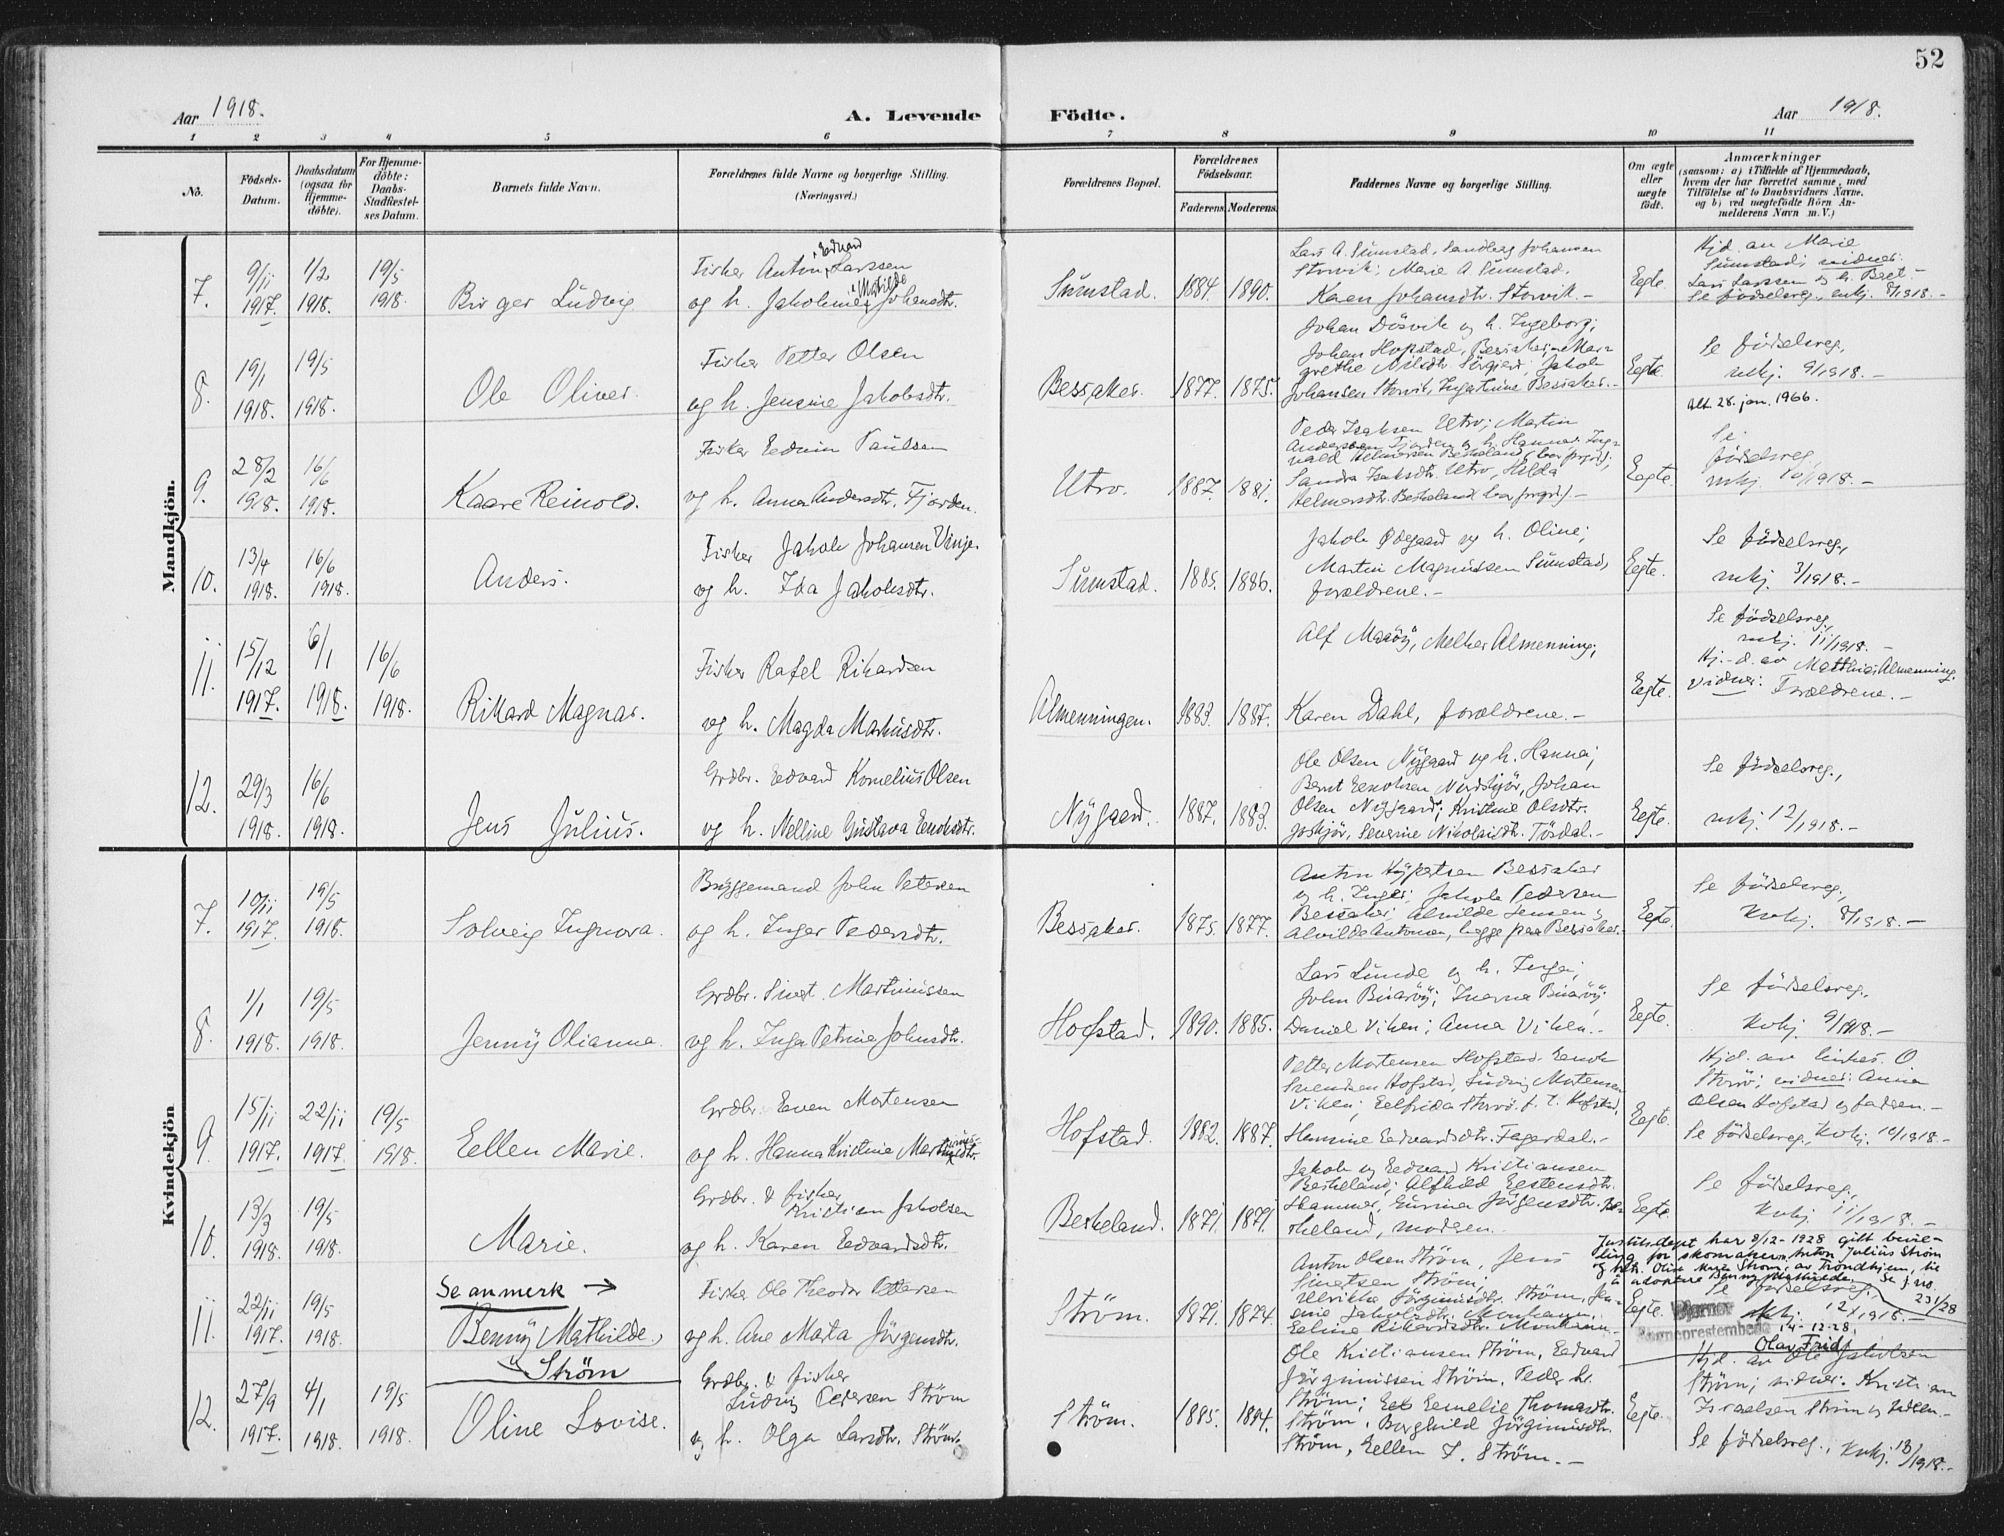 52
Aar 1918.
A. Levende Födte.
Aar 1918.
1 2 3 4 5 6 7 8 9 10 11
No.
Födsels-Datum.
Daabsdatum (ogsaa for Hjemme-döbte).
For Hjemme-döbte: Daabs-Stadfæstel-ses Datum.
Barnets fulde Navn.
Forældrenes fulde Navne og borgerlige Stilling.
(Næringsvei.)
Forældrenes Bopæl.
Forældrenes Födselsaar.
Faderens. Moderens.
Faddernes Navne og borgerlige Stilling.
Om ægte eller uægte födt.
Anmærkninger
(saasom: a) i Tilfælde af Hjemmedaab,
hvem der har forrettet samme, med
Tilföielse af to Daabsvidners Navne,
og b) ved uægtefödte Börn An-
melderens Navn m. V.)
Mandkjön.
7. 9/11 1917. 1/2 1918. 19/5 1918.
Birger Ludvig
Fisker Anton Edvard Larssen
og h. Jakobine Matilde Johansdtr.
Sumstad. 1884. 1890.
Lars A. Sumstad, Sandberg Johansen
Storvik; Marie A. Sumstad.
Karen Johansdtr. Storvik.-
Egte.
Hjd. av Marie
Sumstad; vidner:
Lars Larssen og h. Beret.-
Se fødselsreg., mkj. 8/1918.-
8. 19/1 1918. 19/5 1918.
Ole Oliver.
Fisker Petter Olsen
og h. Jensine Jakobsdtr.
Bessaker. 1877. 1875.
Johan Dösvik og h. Ingeborg;
Johan Hopstad, Bessaker; Mar-
grethe Nilsdtr. Jakob
Johansen Storvik, Bessaker.-
Egte.
Se fødselsreg.,
mkj. 9/1918.-
Att. 28. jan. 1966.
9. 28/2 1918. 16/6 1918.
Kaare Reinold.
Fisker Edvin Paulsen
og h. Anna Andersdtr. Fjorden.
Utro. 1887. 1881.
Peder Isaksen Utro; Martin
Anderssen Fjorden og h. Hanna; Ing-
vald Helmersen Beskeland
Sandra Isaksdtr. Utro, Hilda
Helmersdtr. Beskeland
Egte.
Se
fødselsreg.
mkj. 10/1918.-
10. 13/4 1918. 16/6 1918.
Anders.
Fisker Jakob Johansen Vinje.
og h. Ida Jakobsdtr.
Sumstad. 1885. 1886.
Jakob Ødegaard og h. Oline;
Martin Magnussen Sumstad,
forældrene.-
Egte.
Se fødselsreg.,
mkj. 3/1918.-
11. 15/12 1917. 6/1 1918. 16/6 1918.
Rikard Magnar.
Fisker Rafel Rikardsen
og h. Magda Markusdtr.
Almenningen. 1883. 1887.
Alf Masöy, Melker Almenning;
Karen Dahl, forældrene.-
Egte.
Se fødselsreg.,
mkj. 11/1918.-
Hj.-d. av Matthias Almenning.
Vidner: Forældrene.-
12. 29/3 1918. 16/6 1918.
Jens Julius.
Grdbr. Edvard Kornelius Olsen
og h. Nelline Gustava Enoksdtr.
Nygaard. 1887. 1883.
Ole Olsen Nygaard og h. Hanna;
Bernt Enoksen Nordskjör, Johan
Olsen Nygaard; Kristine Olsdtr.
Severine Nikolaisdtr. Tösdal.-
Egte.
Se fødselsreg.,
mkj. 12/1918.-
Kvindekjön
7. 10/11 1917. 19/5 1918.
Solveig Ingvora.
Bryggemand John Petersen
og h. Inger Pedersdtr.
Bessaker. 1875. 1877.
Anton Bessaker
og h. Inger; Jakob Pedersen
Bessaker; Alvilde Jensen og
Alvilde Antonsen, begge paa Bessaker.
Egte.
Se fødselsreg.,
kvkj. 8/1918.-
8. 1/1 1918. 19/5 1918.
Jenny Olianna.
Grdbr. Sivert Martinussen
og h. Inga Petrine Johnsdtr.
Hofstad. 1890. 1885.
Lars Lunde og h. Inga;
John Buaröy; Buaröy;
Daniel Viken; Anna Viken.-
Egte.
Se fødselsreg.,
kvkj. 9/1918.-
9. 15/11 1917. 22/11 1917. 19/5 1918.
Eellen Marie.
Grdbr. Even Mortensen
og h. Hanna Kristine Martinusdtr.
Hofstad. 1882. 1887.
Petter Mortensen Hofstad. Enok
Svendsen Hofstad, Ludvig Mortensen
Viken; Elfrida Storö f. t. Hofstad,
Hansine Edvardsdtr. Fagerdal.-
Egte.
Hjd. av O
Storö; vidner: Anna
Olsen Hofstad og faderen.-
Se fødselsreg., kvkj. 10/1918.-
10. 13/3 1918. 19/5 1918.
Marie.
Grdbr. & fisker
Kristian Jakobsen
og h. Karen Edvardsdtr.
Beskeland. 1871. 1879.
Jakob og Edvard Kristiansen
Beskeland; Alfhild Eestensdtr.
Hammer, Gurina Jörgensdtr. Bes-
keland, moderen.
Egte.
Se fødselsreg.,
kvkj. 11/1918.-
11. 22/11 1917. 19/5 1918.
Se anmerk →
Benny Mathilde,
Ström
Fisker Ole Theodor Pettersen
og h. Ane Marta Jörgensdtr.
Ström. 1871. 1874.
Anton Olsen Ström, Jens
Sivertsen Ström;
Ulrikke Jörginusdtr. Ström,
Jakobsdtr. Monhaun,
Eeline Rikardsdtr. Monhaun.-
Egte.
Justitsdept har 8/12-1928 gitt bevil-
ling for skomakerm. Anton Julius Ström
og htr. Oline Marie Strøm, av Trondhjem, til
å adoptere Benny Mathilde. Se j no.
231/28
Se fødselsreg.,
kvkj. 12/1918.-
Bjørnør
Sogneprestembede
14-12-28.
Olav Frid
12. 27/9 1917. 4/1 1918. 19/5 1918.
Oline Lovise.
Grdbr. & fisker
Ludvig Pedersen Ström
og h. Olga Larsdtr. Ström.
Ström. 1885. 1894.
Ole Kristiansen Ström, Edvard
Jörginussen Ström, Peder kr.
Ström; Emelie Thomasdtr.
Ström, Borghild Jörginusdtr.
Ström, Eellen J. Ström.-
Egte.
Hjd. av Ole Jakobsen
Ström; vidner: Kristian
Israelsen Ström og Eellen.-
Se fødselsreg.; kvkj. 13/1918.-